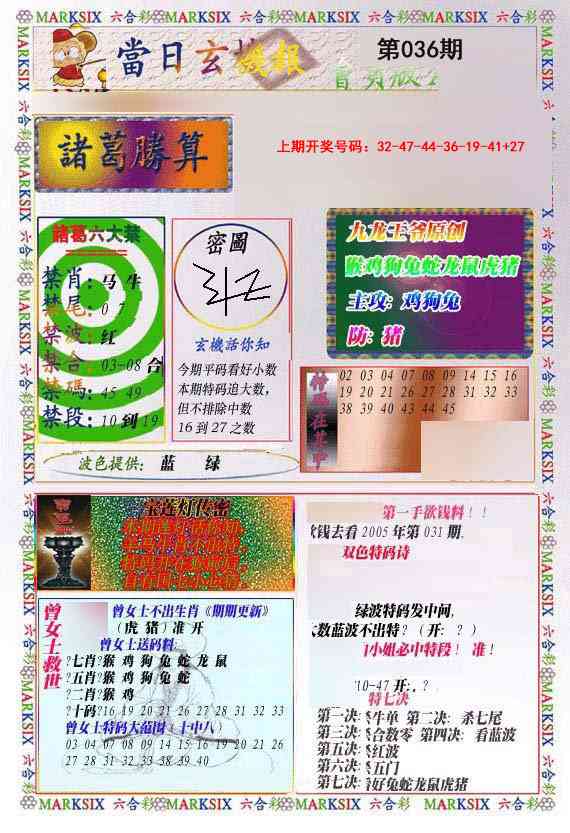 MARKSIX 六合彩 MARKSIX 六合彩 MARKSIX 六合彩 MARKSIX 六合彩
當日玄機報
第036期
諸葛勝算
上期开奖号码：32-47-44-36-19-41+27
諸葛六大禁
禁肖：马牛
禁尾：0 7
禁波：红
禁合：03-08合
禁碼：45 49
禁段：10到19
密圖
玄機話你知
今期平码看好小数
本期特码追大数，
但不排除中数
16到27之数
九龙王爷原创
猴鸡狗兔蛇龙鼠虎猪
主攻：鸡狗兔
防：猪
02 03 04 07 08 09 14 15 16
19 20 21 26 27 28 31 32 33
38 39 40 43 44 45
波色提供： 蓝 绿
宝莲灯传密
第一手欲钱料！！
欲钱去看2005年第031期.
双色特码诗
绿波特码发中间,
大数蓝波不出特？（开：？）
小姐必中特段！准！
10-47开:.？
特七决
第一决:杀牛单 第二决:杀七尾
第三决:杀合数零 第四决:看蓝波
第五决:杀红波
第六决:杀五门
第七决:看好兔蛇龙鼠虎猪
曾女士救世
曾女士不出生肖《期期更新》
（虎 猪）准开
曾女士送码料:
?七肖?猴 鸡 狗 兔 蛇 龙 鼠
?五肖?猴 鸡 狗 兔 蛇
?二肖?猴 鸡
?十码?16 19 20 21 26 27 28 31 32 33
曾女士特码大范围（十中八）
03 04 07 08 09 14 15 16 19 20 21 26
27 28 31 32 33 38 39 40
MARKSIX 六合彩 MARKSIX 六合彩 MARKSIX 六合彩 MARKSIX 六合彩